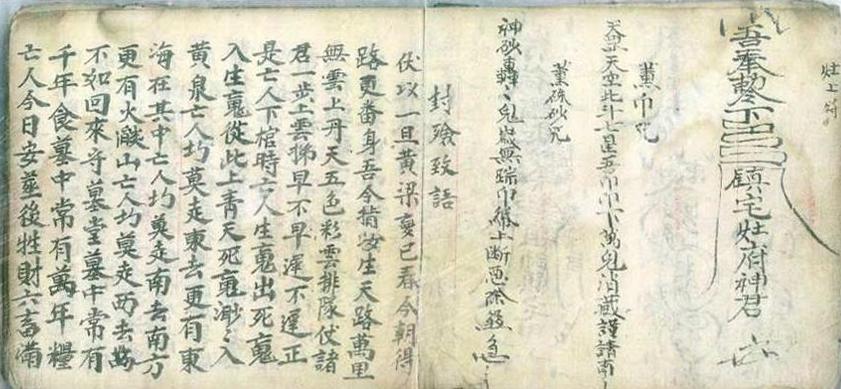 灶上符
吾奉敕下 鎮宅灶府神君
薰巾咒
天皇天空北斗七星吾巾巾下萬鬼消藏謹請南
薰硃砂咒
神砂轟々鬼無踪巾上断惡除殺急々
封殮致語
伏以一旦黃梁夢已春今朝得
路更番身吾今指汝生天路萬里
無雲上丹天五色彩雲排隊伏諸
君一步上雲梯早不早遲不遲正
是亡人下棺時亡人生䰟出死䰟
入生䰟從此上靑天死䰟渺々入
黃泉亡人切莫走東去更有東
海在其中亡人切莫走南去南方
更有火燄山亡人切莫走西去
不如回來守墓堂墓中常有
千年食墓中常有萬年糧
亡人今日安葬後牲財六畜滿